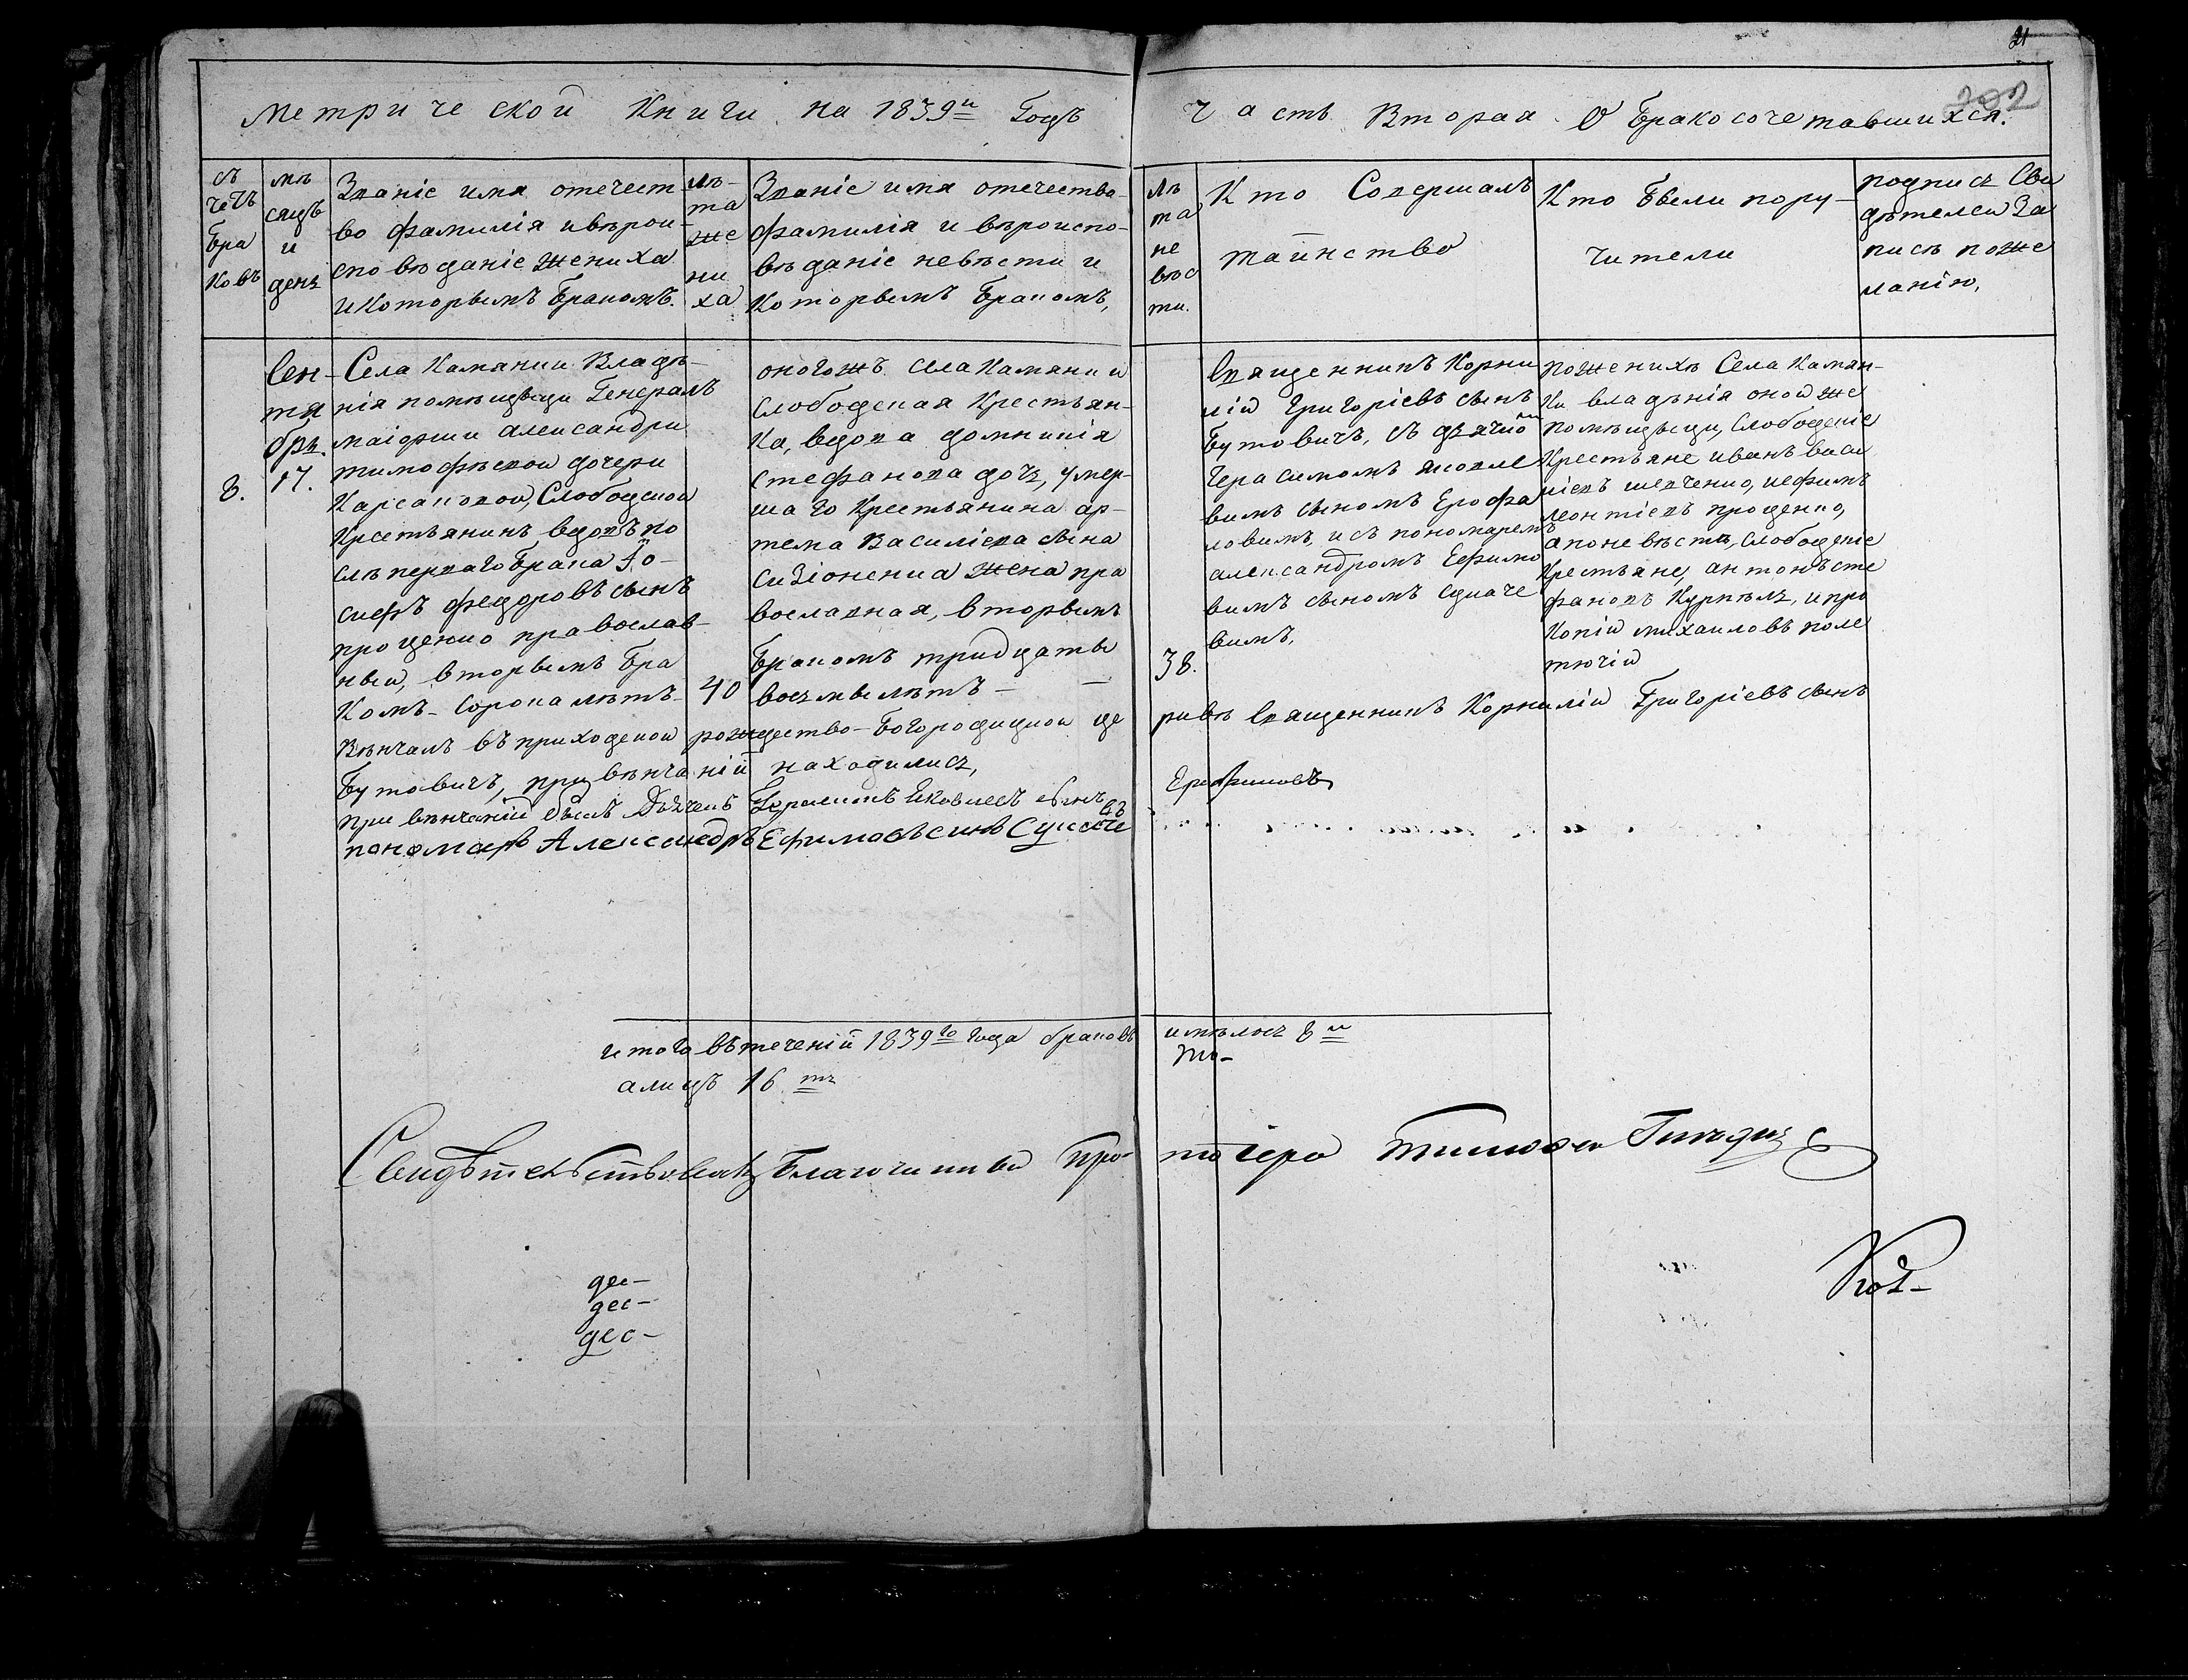 21
202
Метрической Книги на 1839й Годъ
Часть Вторая О Бракосочетавшихся.
съ
четъ
Бра
ковъ
мѣ
сяцъ
и
день
Званіе имя отечест-
во фамилія ивѣрои-
сповѣданіе жениха
икоторымъ Бракомъ.
лѣ-
та
же
ни
ха
Званіе имя отечество
фамилія и вѣроиспо-
вѣданіе невѣсти и
которымъ Бракомъ,
лѣ
та
не
вѣс
ти.
Кто Совершалъ
таинство
Кто Были пору-
чители
подпись Сви
дѣтелей За
пись поже
ланію,
8.
Сен-
тя
брь.
17.
Села Камянки Владѣ-
нія помѣщыци Генералъ
маіорши александри
тимофѣевой дочери
Карсаковой, Слободской
Крестьянинъ вдовъ по
слѣ перваго Брака Іо-
сифъ федоровъ сынъ
проценко православ-
ный, вторымъ Бра
комъ - Сорока лѣтъ -
40
оногожъ села Камянки
Слободская Крестьян-
ка, вдова домникія
Стефанова дочь, умер-
шаго Крестьянина ар-
тема Василіева сына
Сизіоненка жена пра
вославная, вторымъ
Бракомъ тридцаты
восьмы лѣтъ -
38.
Священникъ Корни
лій Григоріевъ сынъ
Бутовичъ, съ дячко
Герасимомъ яковле
вимъ сыномъ Ерофа
ловимъ, и съ пономаремъ
александромъ Ефимо
вимъ сыномъ Сукаче
вимъ,
пожениху Села Камян-
ки владѣнія оной же
помѣщыци, Слободскіе
Крестьяне иванъ васи
ліевъ шевченко, иефимъ
леонтіевъ проценко,
апоневѣстѣ, Слободскіе
Крестьяне, антонъ сте
фановъ Курпѣль, ипро
копій михаиловъ поле
тючій
Вѣнчалъ въ приходской рождество-Богородицкой це
рквѣ Священникъ Корнилій Григоріевъ сынъ
Бутовичъ, при вѣнчаніи находились,
при вѣнчаніи былъ Дьячекъ Герасимъ Яковлевъ сынъ
Ерофаловъ
пономарь Александръ Ефимовъ синъ Сукаче
въ
итого въ теченіи 1839го года браковъ имѣлось 8м
алицъ 16ть
Свидѣтельствовалъ Благочинный Про-
тоіерей Тимофей
дес-
дес-
дес-